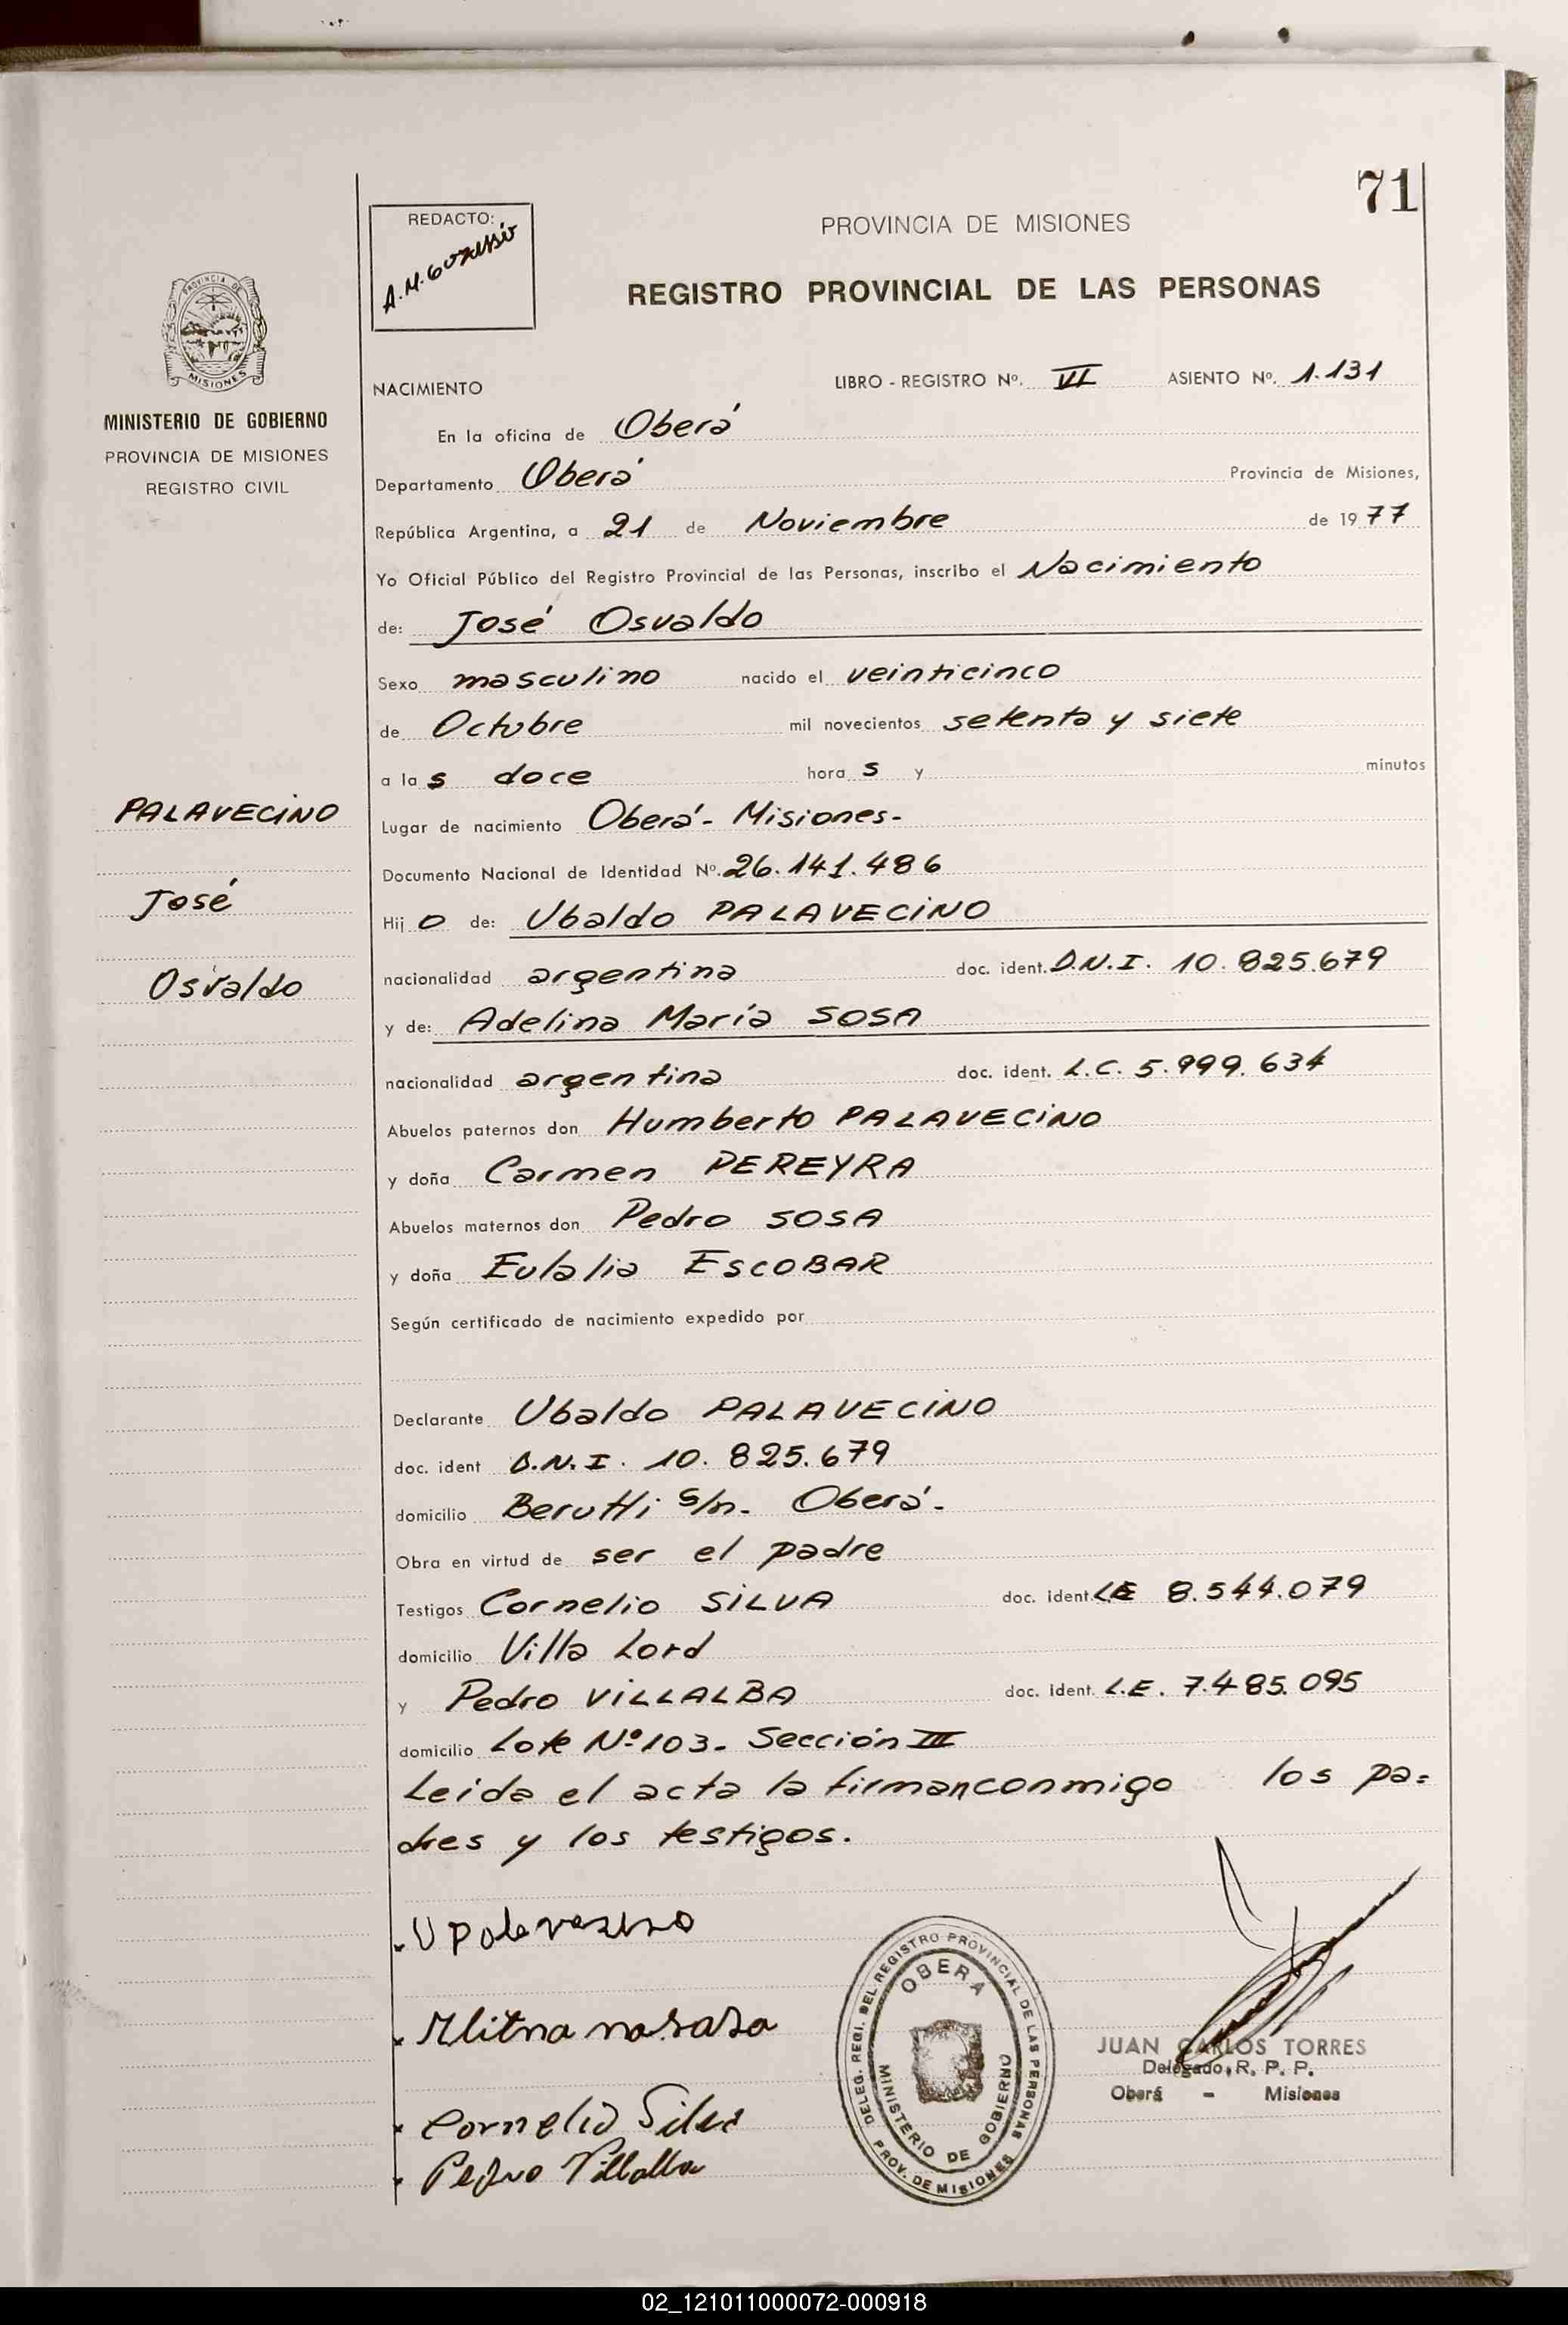 71
REDACTO:
A.M.
PROVINCIA DE MISIONES
REGISTRO PROVINCIAL DE LAS PERSONAS
PROVINCIA DE
MISIONES
MINISTERIO DE GOBIERNO
PROVINCIA DE MISIONES
REGISTRO CIVIL
NACIMIENTO LIBRO - REGISTRO Nº. VI ASIENTO Nº. 1.131
En la oficina de Oberá
Departamento Oberá Provincia de Misiones,
República Argentina, a 21 de Noviembre de 1977
Yo Oficial Público del Registro Provincial de las Personas, inscribo el Nacimiento
de: José Osvaldo
Sexo masculino nacido el veinticinco
de Octubre mil novecientos setenta y siete
a las doce horas y minutos
PALAVECINO
José
Osvaldo
Lugar de nacimiento Oberá - Misiones-
Documento Nacional de Identidad Nº. 26.141.486
Hijo de: Ubaldo PALAVECINO
nacionalidad argentina doc. ident. D.N.I. 10.825.679
y de: Adelina María SOSA
nacionalidad argentina doc. ident. L.C. 5.999.634
Abuelos paternos don Humberto PALAVECINO
y doña Carmen PEREYRA
Abuelos maternos don Pedro SOSA
y doña Eulalia ESCOBAR
Según certificado de nacimiento expedido por
Declarante Ubaldo PALAVECINO
doc. ident D.N.I. 10.825.679
domicilio Berutti s/n- Oberá-
Obra en virtud de ser el padre
Testigos Cornelio SILVA doc. ident. LE 8.544.079
domicilio Villa Lord
y Pedro VILLALBA doc. ident. L.E. 7.485.095
domicilio Lote Nº 103- Sección III
Leída el acta la firman conmigo los pa=
dres y los testigos.
U Palavesino
Cornelio Silva
Pedro Villalba
DELEG. REGI. DEL REGISTRO PROVINCIAL DE LAS PERSONAS
OBERA
MINISTERIO DE GOBIERNO
PROV. DE MISIONES
JUAN CARLOS TORRES
Delegado, R. P. P.
Oberá - Misiones
02_121011000072-000918